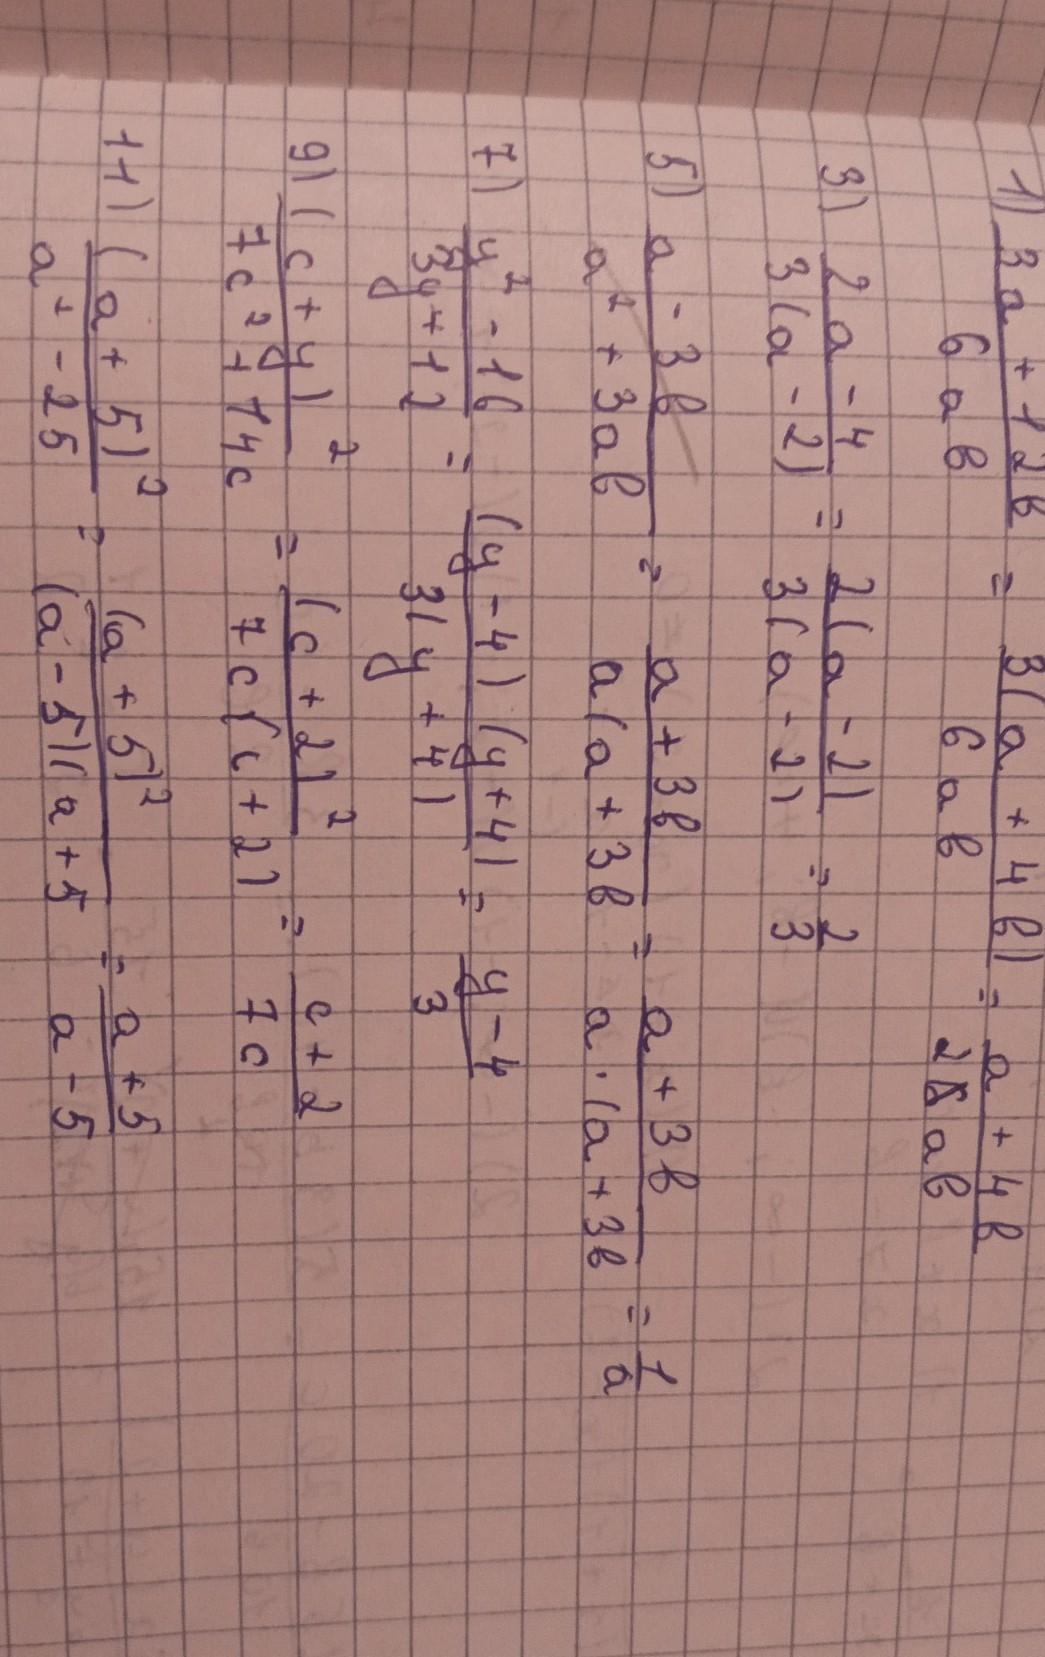 1) (3a + 12b)/(6ab) = (3(a + 4b))/(6ab) = (a + 4b)/(2ab)
3) (2a - 4)/(3(a - 2)) = (2(a - 2))/(3(a - 2)) = 2/3
5) (a - 3b)/(a² + 3ab) = (a + 3b)/(a(a + 3b) = (a + 3b)/(a · (a + 3b) = 1/a
7) (y² - 16)/(3y + 12) = ((y - 4)(y + 4))/(3(y + 4)) = (y - 4)/3
9) (c + y)²/(7c² + 14c) = (c + 2)²/(7c(c + 2)) = (c + 2)/(7c)
11) (a + 5)²/(a² - 25) = (a + 5)²/((a - 5)(a + 5) = (a + 5)/(a - 5)